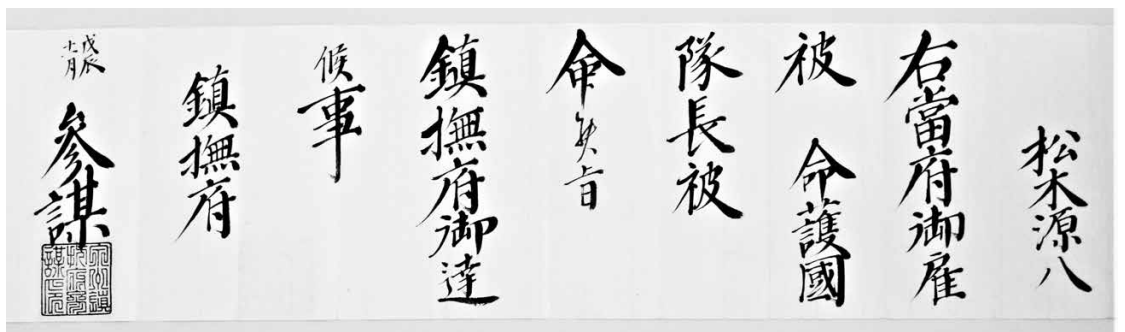 松木源八
右當府御雇
被　命護國
隊長被
命候旨
鎮撫府御達
候事
鎮撫府
戊辰
十一月
參謀